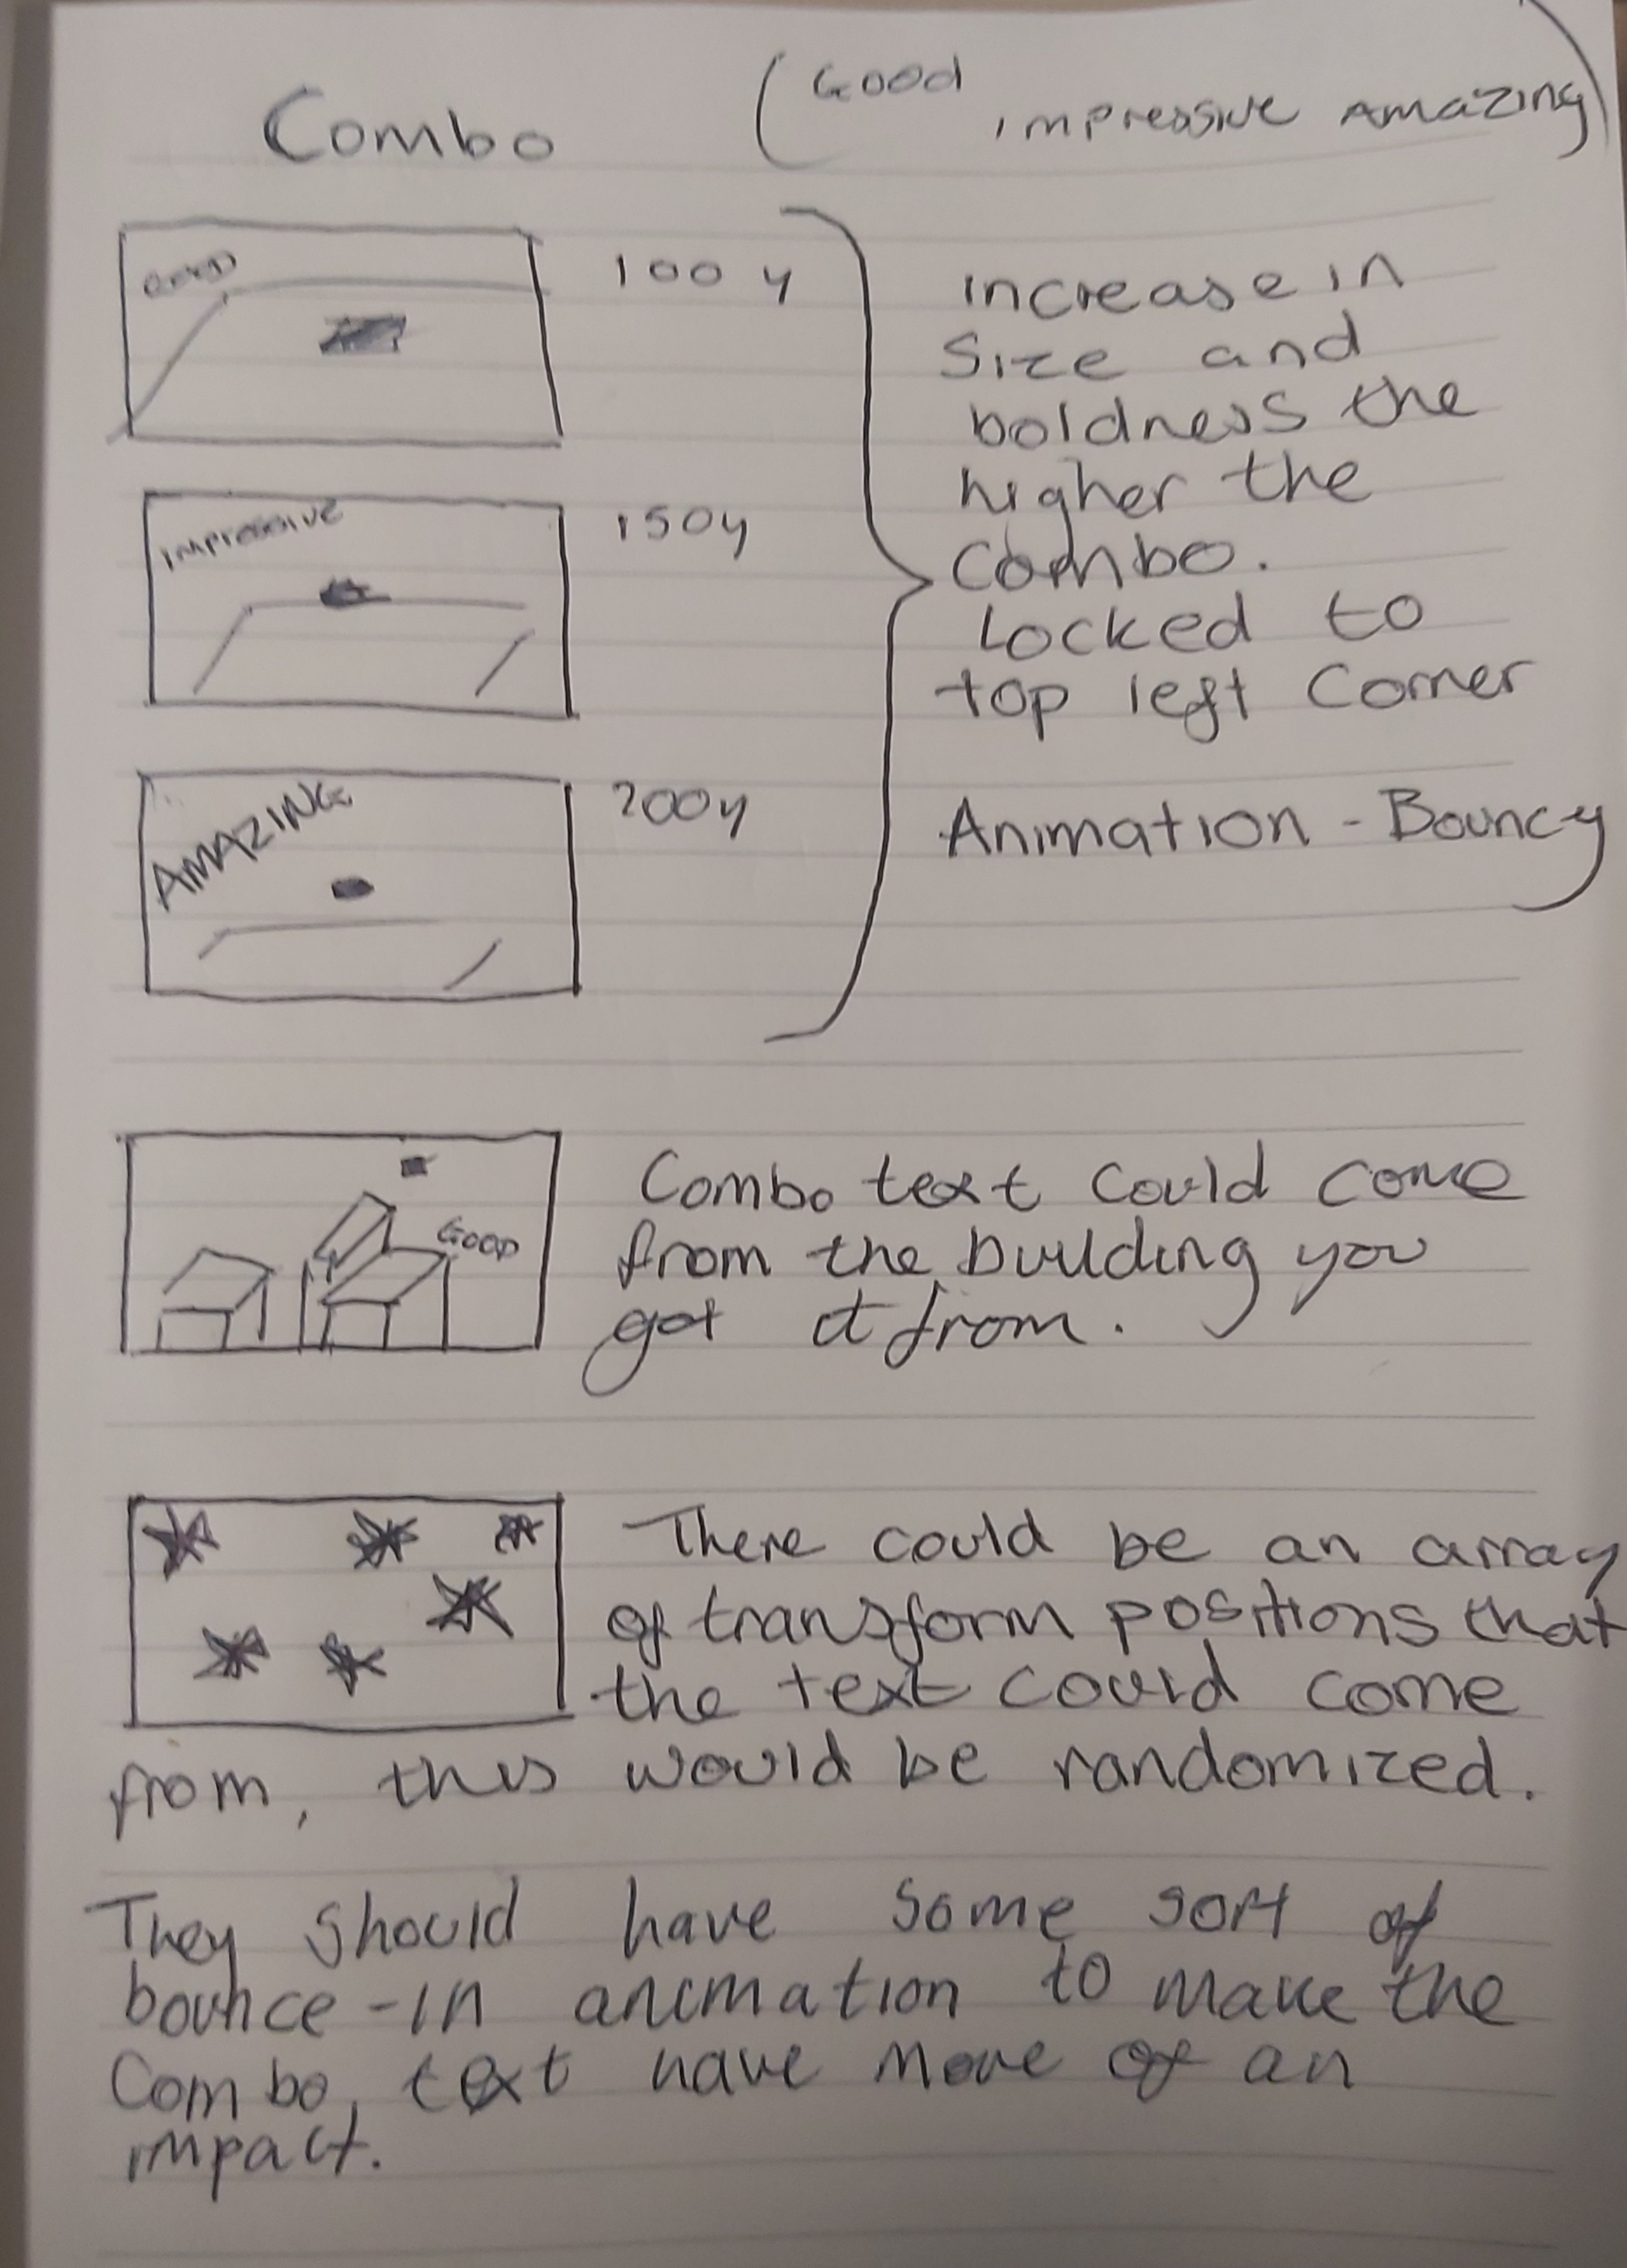 Combo
(Good
impressive Amazing)
GOOD
100 y
increase in
size and
boldness the
higher the
Combo.
Locked to
top left corner
impressive
150y
AMAZING
200y
Animation - Bouncy
GOOD
Combo text could come
from the building you
got it from.
There could be an array
of transform positions that
the text could come
from, this would be randomized.
They should have some sort of
bounce-in animation to make the
Combo text have more of an
impact.